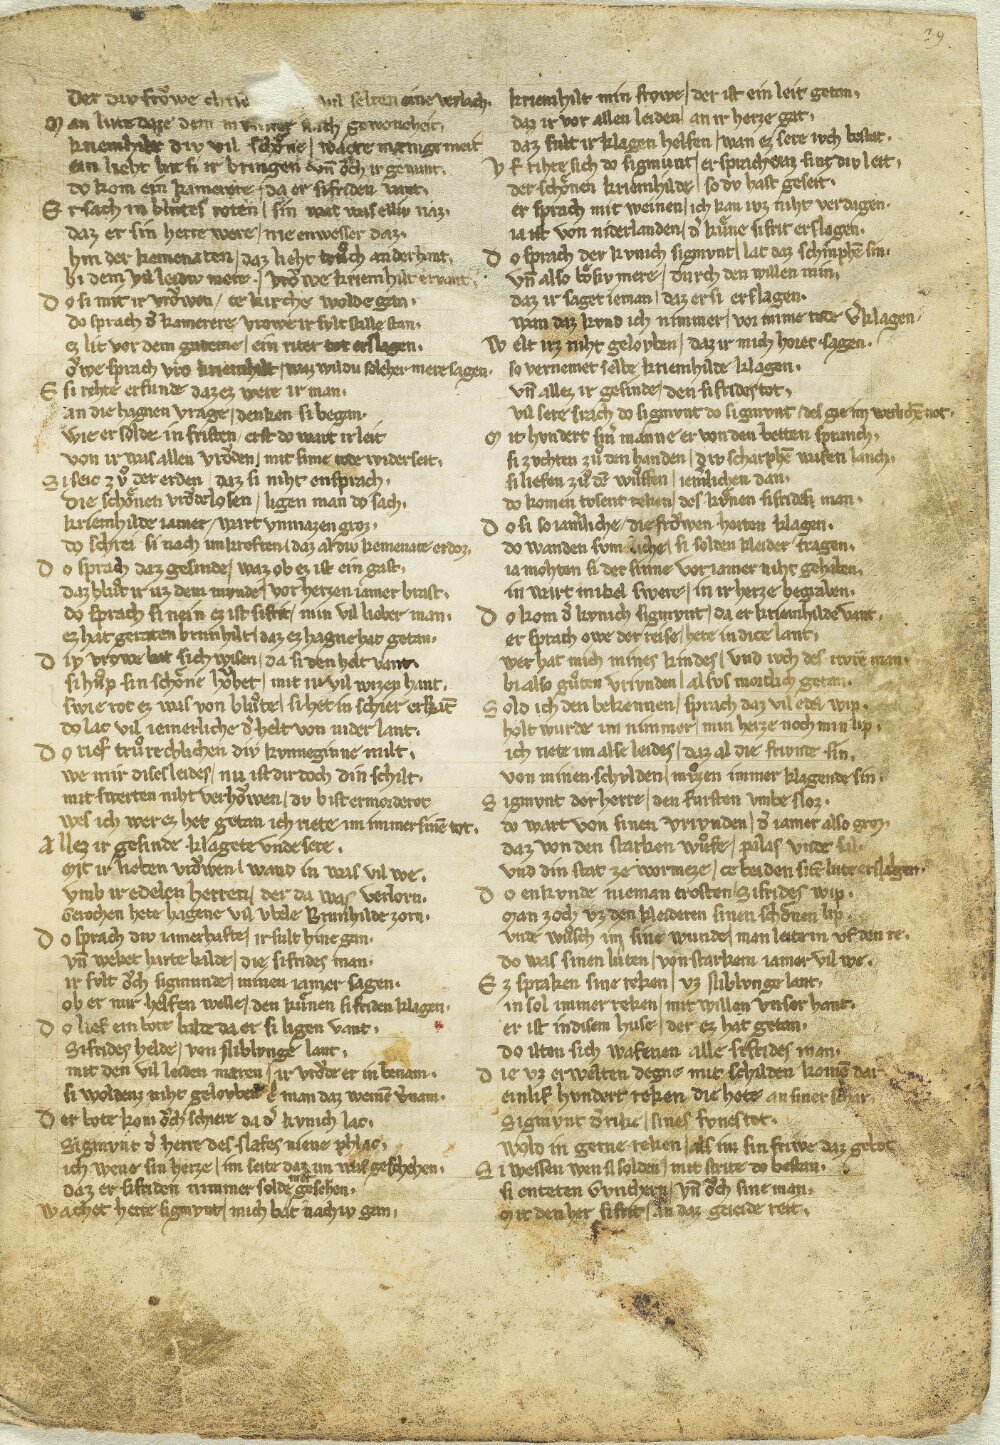 29
Der div frowe vil selten eine verlach.
Man lute daze dem nach gewoneheit,
kriemhilt div vil schone wacte manige meit
ein lieht bat si ir bringen vn̄ och ir gewant.
do kom ein kamerere da er sifriden vant.
Er sach in blůtes roten sin wat was elliv naz.
daz er sin herre were nie enwesser daz.
hin der kemenaten daz lieht trůch an der hant,
bi dem vil leidiv mere vrowe kriemhilt ervant.
Do si mit ir vrowen ce kirche wolde gan.
do sprach d' kamerere vrowe ir svlt stille stan.
ez lit vor dem gademe ein riter tot erslagen.
owe sprach vro kriemhilt waz wil du solcher mere sagen.
E si rehte erfunde daz ez were ir man.
an die hagnen vrage denken si began.
wie er solde in fristen erst do wart ir leit
von ir was allen vroden mit sime tode widerseit.
Si seic zů der erden daz si niht ensprach.
die schonen vrodelosen ligen man do sach.
kriemhilde iamer wart vnmazen groz.
do schrei si nach unkreften daz al div kemenate erdoz.
Do sprach daz gesinde waz ob ez ist ein gast.
daz blůt ir uz dem mvnde vor herzen iamer brast.
do sprach si nein ez ist sifrit min vil lieber man.
ez hat geraten brunhilt daz ez hagne hat getan.
Div vrowe bat sich wisen da si den helt vant.
si hůp sin schone hovbet mit ir vil wizen hant.
swie rot ez was von blůte si het in schier erkāt
do lac vil iemerliche d' helt von nider lant.
Do rief trůrechlichen div kvneginne milt.
we mir dises leides nu ist dir doch din schilt.
mit swerten niht verhowen dv bist ermorderot
wes ich wer ez het getan ich riete im immer sinē tot.
Allez ir gesinde klagete vnde sere.
mit ir lieben vrowen wand in was vil we.
vmb ir edelen herren der da was verlorn.
Gerochen hete hagene vil vbele Brunhilde zorn.
Do sprach div iamerhafte ir sult hine gan.
vn̄ weket harte balde die sifrides man.
ir svlt och sigmunde minen iamer sagen.
ob er mir helfen welle den kůnen sifriden klagen.
Do lief ein bote balde da er si ligen vant.
Sifrides helde von niblvnge lant.
mit den vil leiden maren ir vrode er in benam.
si woldenz niht gelovben e man daz weinē v'nam.
Der bote kom och schiere da d' kvnich lac.
Sigmvnt d' herre des slafes niene phlac.
ich wene sin herze im seite daz im was geschehen.
daz er sifriden nimmer solde mer gesehen.
Wachet herre sigmvnt mich bat nach iv gan.
kriemhilt min frowe der ist ein leit getan.
daz ir vor allen leiden an ir herze gat.
daz sult ir klagen helfen wan ez sere ivch bestat.
Vf rihte sich do sigmunt er sprach waz sint div leit.
der schonen kriemhilde so dv hast geseit.
er sprach mit weinen ich kan ivz niht verdagen.
ia ist von niderlanden d' kůne sifrit erslagen.
Do sprach der kvnich sigmvnt lat daz schimphē sin.
vn̄ also bosiv mere durch den willen min.
daz ir saget ieman daz er si erslagen.
wan daz kvnd ich nimmer vor mime tode v'klagen.
Welt irz niht gelovben daz ir mich horet sagen.
so vernemet selbe kriemhilde klagen.
vn̄ allez ir gesinde den sifrides tot.
vil sere srach do sigmvnt do sigmvnt des gie im werlichē not.
Mit hvndert sin' manne er von den betten spranch.
si zvchten zů den handen div scharphē wafen lanch.
si liefen zů dē wůffen iem'lichen dan.
do komen tvsent reken des kůnen sifrides man.
Do si so iam'liche die frowen horten klagen.
do wanden svmliche si solden kleider tragen.
ia mohten si der sinne vor iamer niht gehaben.
in wart michel swere in ir herze begraben.
Do kom d' kvnich sigmvnt da er kriemhilde vant.
er sprach owe der reise here in dice lant.
wer hat mich mines kindes vnd ivch des iwrē man.
bi also gůten vrivnden al svs mortlich getan.
Sold ich den bekennen sprach daz vil edel wip.
holt wurde im nimmer min herze noch min lip.
ich riete im alse leides daz al die frivnde sin.
von minen schvlden mvzen immer klagende sin.
Sigmvnt der herre den fursten vmbe sloz.
do wart von sinen vrivnden d' iamer also groz.
daz von den starken wůfe palas vnde sal.
vnd din stat ze wormeze
Do enkvnde nieman trosten Sifrides wip.
Man zoch vz den kleideren sinen schonen lip.
vnde wůsch im sine wunde man leite in vf den re.
do was sinen lůten von starkem iamer vil we.
Ez spraken sine reken vz niblvnge lant.
in sol immer reken mit willen vnser hant.
er ist in disem huse der ez hat getan.
do ilten sich wafenen alle sifrides man.
Die vz erwelten degne mit schilden komē dar
einlif hvndert reken die hete an siner schar.
Sigmvnt d' riche sines svnes tot.
wold in gerne reken als im sin triwe daz gebot
Si wessen wen si solden mit strite do bestan.
si enteten Gvnthern vn̄ och sine man.
Mit den her sifrit an daz geieide reit.